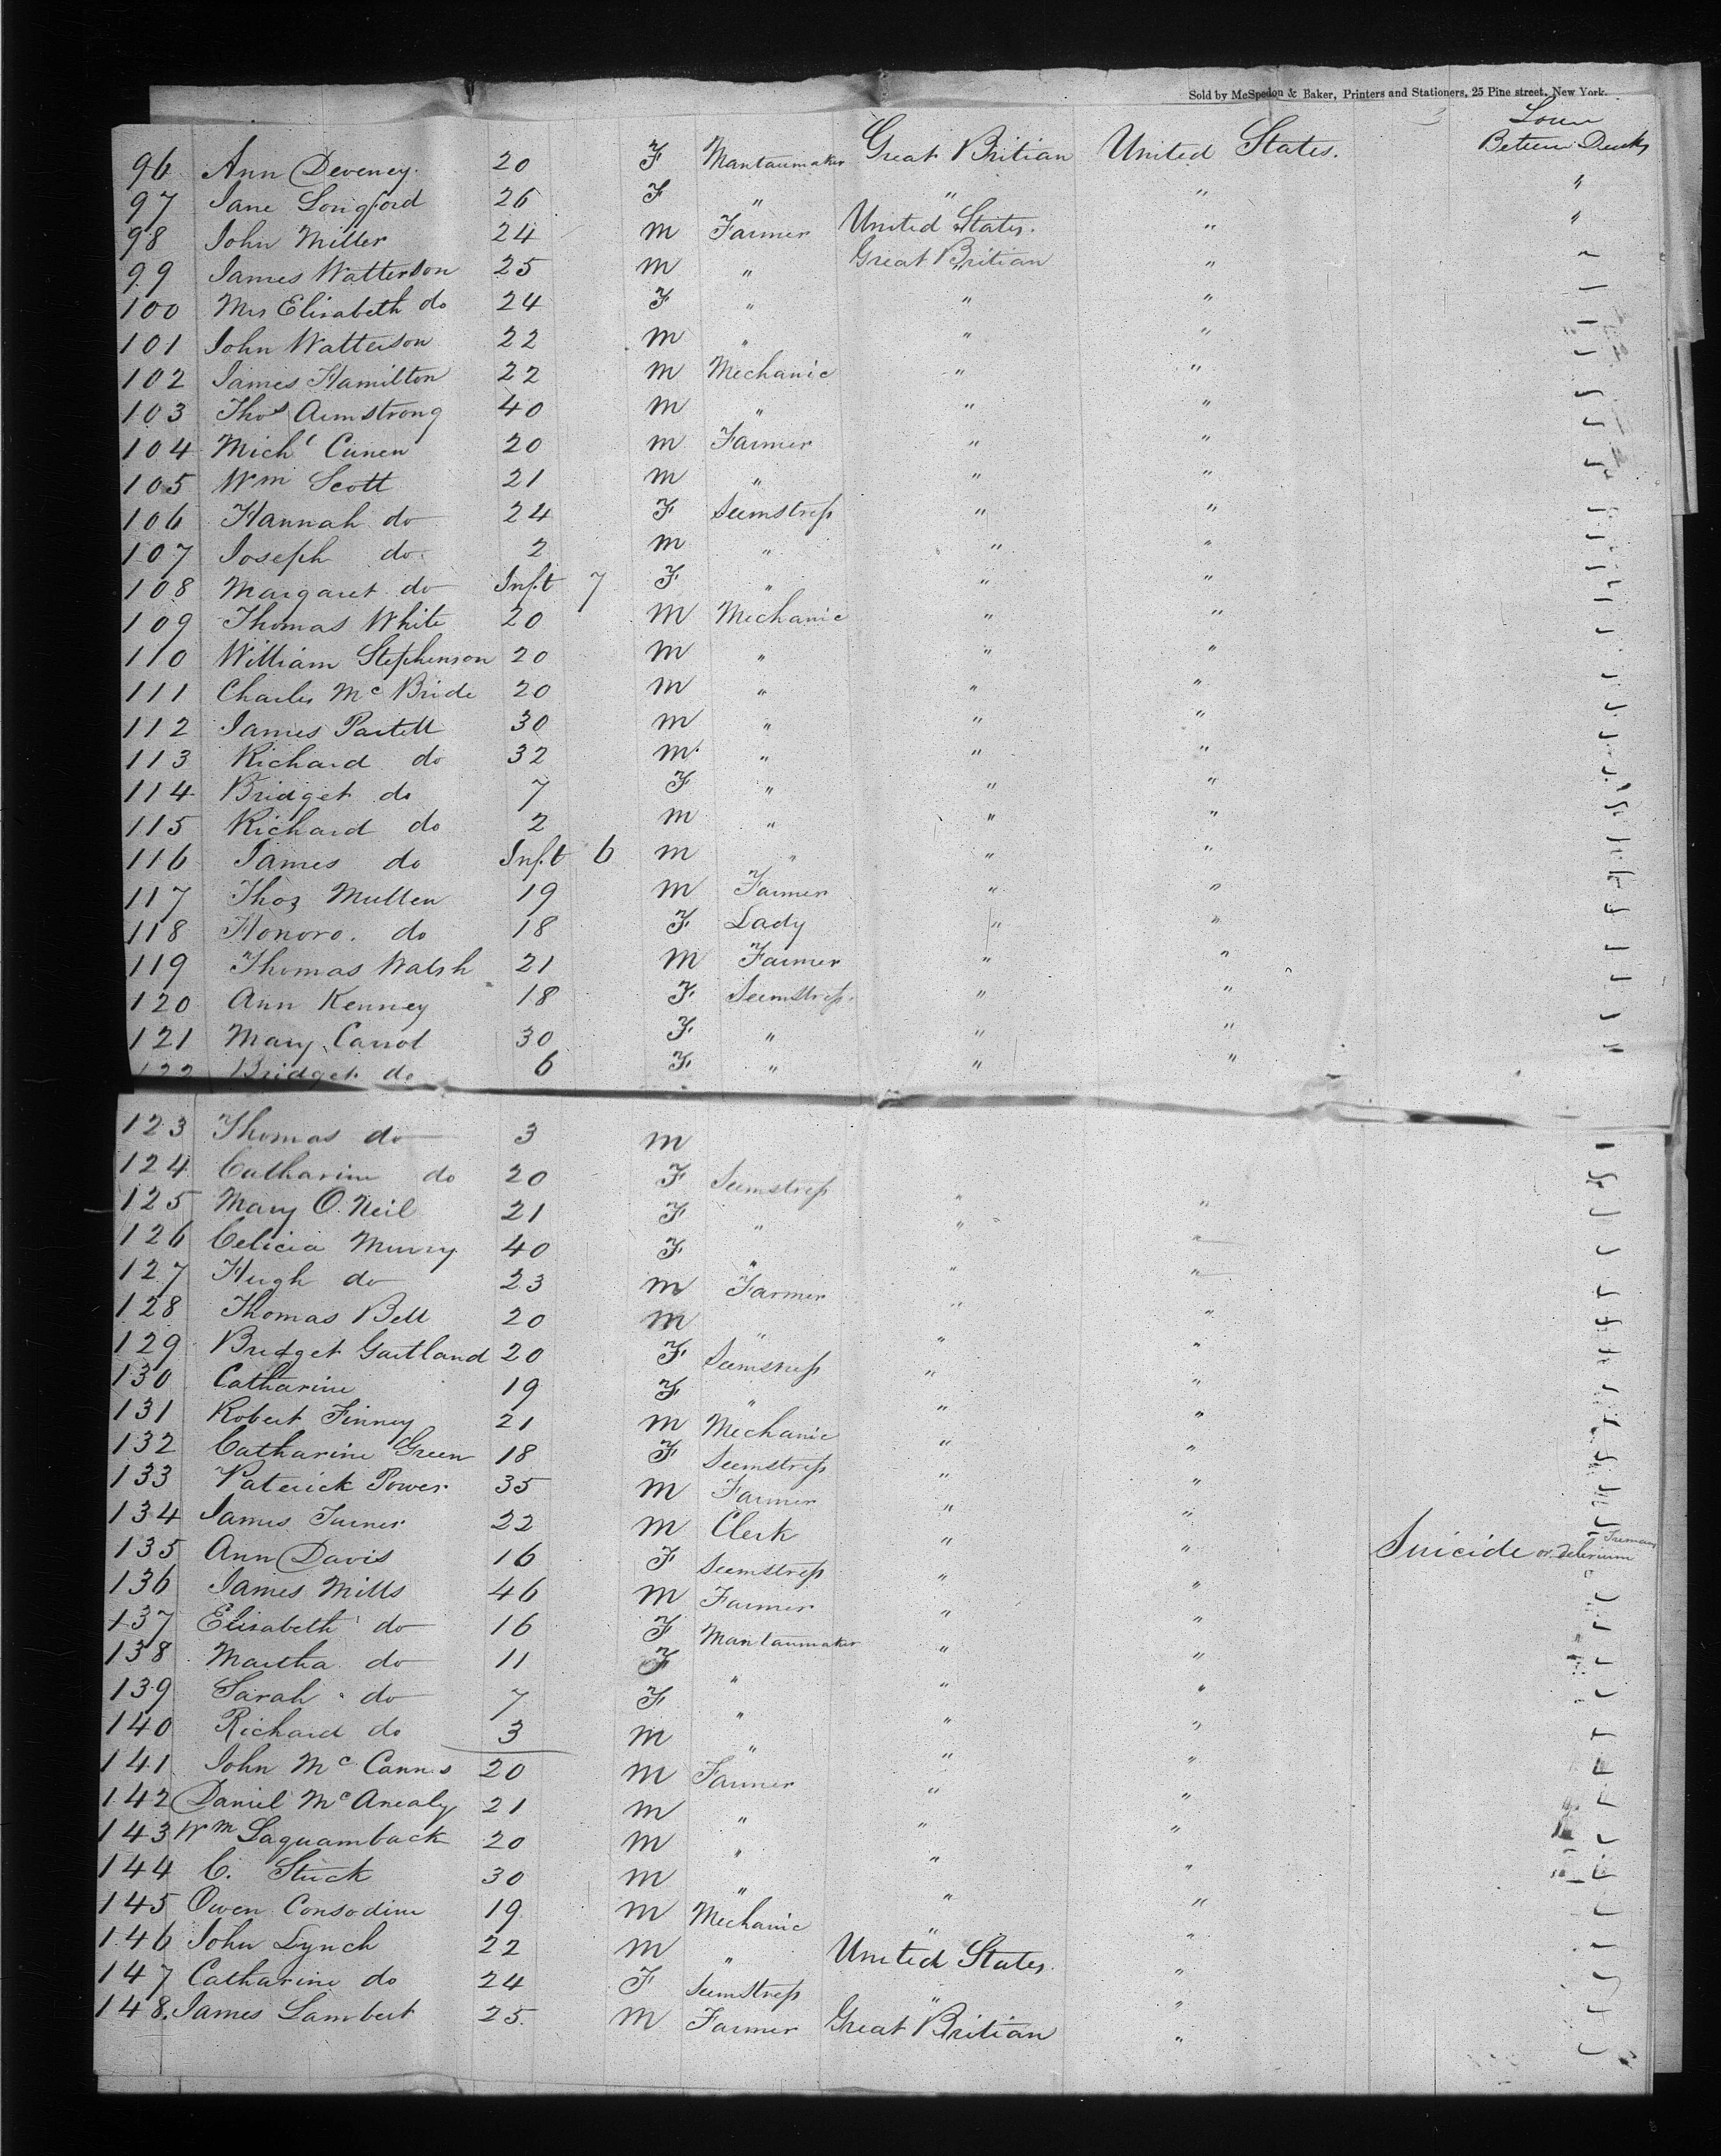 Sold by McSpedon & Baker, Printers and Stationers, 25 Pine street, New York.
96 Ann Deveney 20 F Mantaumaker Great Britian United States. Lower Between Decks
97 Jane Longford 26 F " " " "
98 John Miller 24 m Farmer United States. " "
99 James Watterson 25 m " Great Britian " "
100 Mrs Elisabeth do 24 F " " "
101 John Watterson 22 m " " "
102 James Hamilton 22 m Mechanic " "
103 Thos Armstrong 40 m " " "
104 Michl Cunen 20 m Farmer " "
105 Wm Scott 21 m " " "
106 Hannah do 24 F Seemstress " "
107 Joseph do 2 m " " "
108 Margaret do Inft 7 F " " "
109 Thomas White 20 m Mechanic " "
110 William Stephenson 20 m " " "
111 Charles Mc Bride 20 m " " "
112 James Partell 30 m " " "
113 Richard do 32 m " " "
114 Bridget do 7 F " " "
115 Richard do 2 m " " "
116 James do Inft 6 m " " "
117 Thos Mullen 19 m Farmer " "
118 Honoro. do 18 F Lady " "
119 Thomas Walsh 21 m Farmer " "
120 Ann Kenney 18 F Seemstress " "
121 Mary Carrol 30 F " " "
122 Bridget do 6 F " " "
123 Thomas do 3 m
124 Catharine do 20 F Seemstress " "
125 Mary O. Neil 21 F " " "
126 Celicia Murry 40 F " " "
127 Hugh do 23 m Farmer " "
128 Thomas Bell 20 m " " "
129 Bridget Gartland 20 F Seemstress " "
130 Catharine 19 F " " "
131 Robert Finney 21 m Mechanic " "
132 Catharine Green 18 F Seemstress " "
133 Paterick Power 35 m Farmer " "
134 James Turner 22 m Clerk " " Suicide or Delerium Tremens
135 Ann Davis 16 F Seemstress " "
136 James Mills 46 m Farmer " "
137 Elisabeth do 16 F Mantaumaker " "
138 Martha do 11 F " " "
139 Sarah do 7 F " " "
140 Richard do 3 m " " "
141 John Mc Cannis 20 m Farmer " "
142 Daniel Mc Anealy 21 m " " "
143 Wm Laguamback 20 m " " "
144 C. Stuck 30 m " " "
145 Owen Consodine 19 m Mechanic " "
146 John Lynch 22 m " United States. "
147 Catharine do 24 F Seemstress " "
148. James Lambert 25 m Farmer Great Britian "